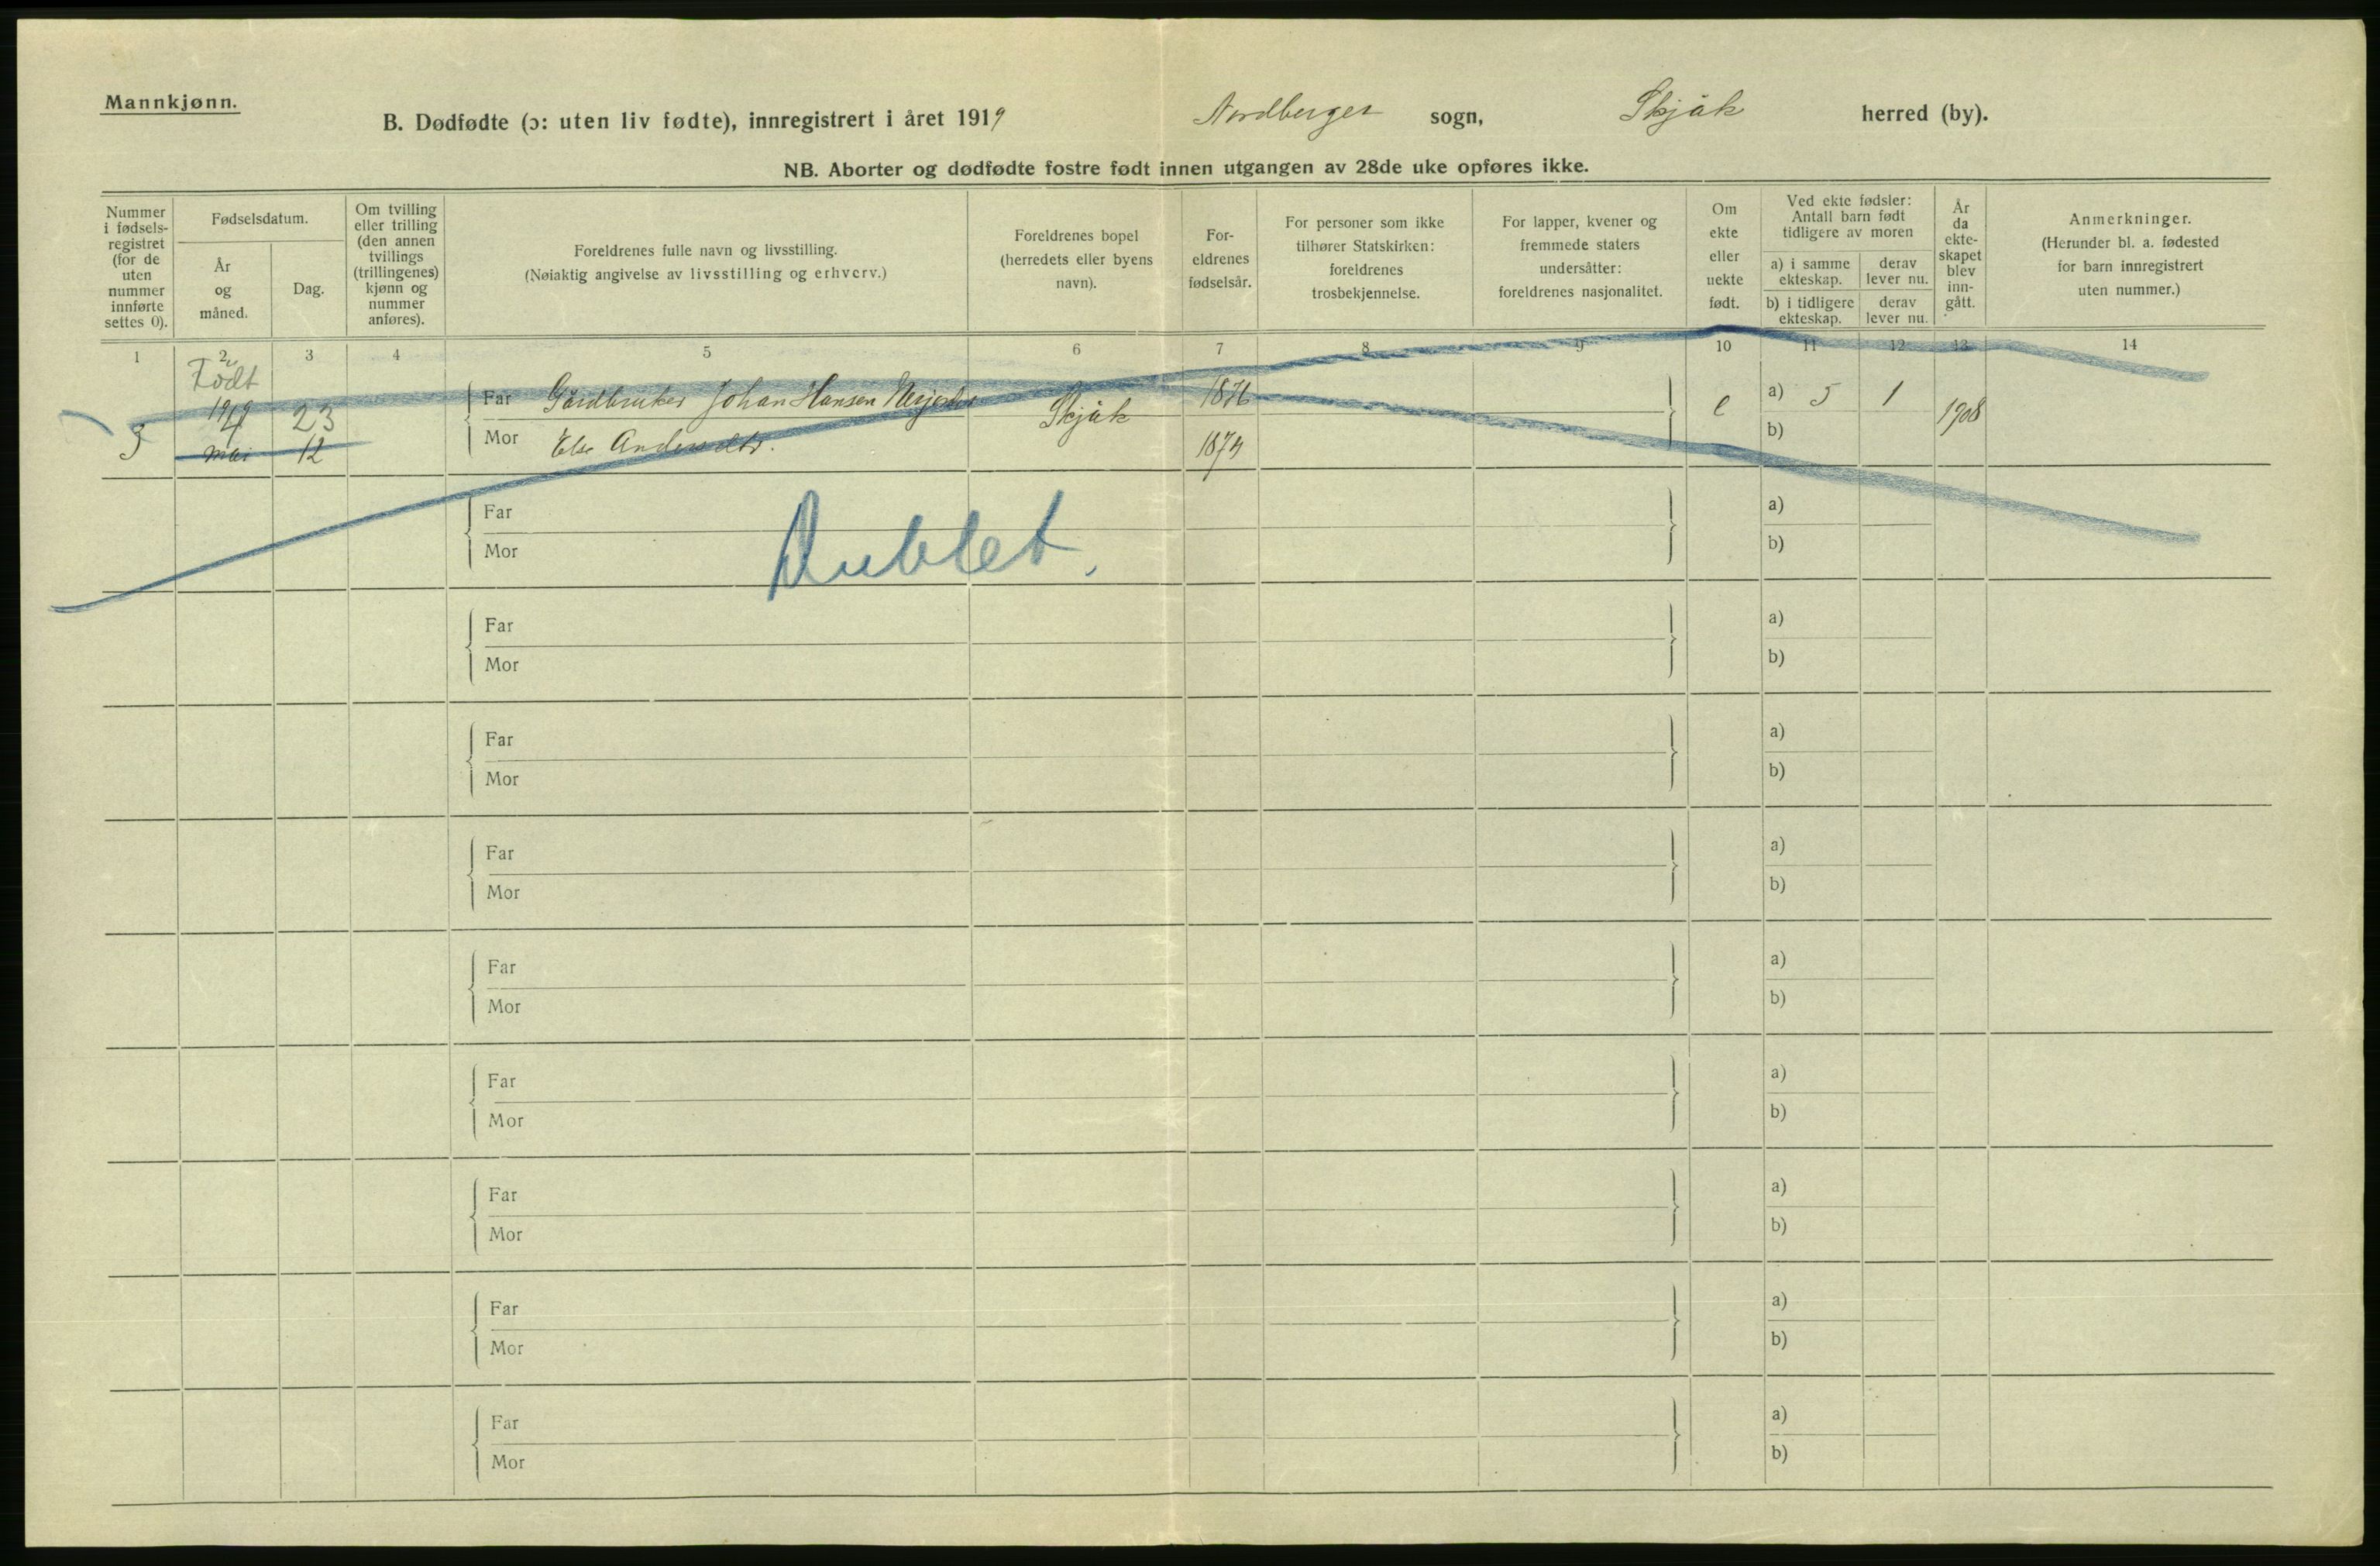 Mannkjønn.
B. Dødfødte (ɔ: uten liv fødte), innregistrert i året 1919 Nordberger sogn, Skjåk herred (by).
NB. Aborter og dødfødte fostre født innen utgangen av 28de uke opføres ikke.
Nummer i fødsels-registret (for de uten nummer innførte settes 0).
Fødselsdatum.
År og måned.
Dag.
Om tvilling eller trilling (den annen tvillings (trillingenes) kjønn og nummer anføres).
Foreldrenes fulle navn og livsstilling.
(Nøiaktig angivelse av livsstilling og erhverv.)
Foreldrenes bopel (herredets eller byens navn).
For-eldrenes fødselsår.
For personer som ikke tilhører Statskirken: foreldrenes trosbekjennelse.
For lapper, kvener og fremmede staters undersåtter: foreldrenes nasjonalitet.
Om ekte eller uekte født.
Ved ekte fødsler: Antall barn født tidligere av moren
a) i samme ekteskap.
derav lever nu.
b) i tidligere ekteskap.
derav lever nu.
År da ekte-skapet blev inn-gått.
Anmerkninger.
(Herunder bl. a. fødested for barn innregistrert uten nummer.)
1 2 3 4 5 6 7 8 9 10 11 12 13 14
Født
1919 23 Far Gårdbruker Johan Hansen Skjåk 1876 e a) 5 1 1908
3 4 mai 12 Mor Else Andersdtr. 1874 b)
Far a)
Dublet.
Mor b)
Far a)
Mor b)
Far a)
Mor b)
Far a)
Mor b)
Far a)
Mor b)
Far a)
Mor b)
Far a)
Mor b)
Far a)
Mor b)
Far a)
Mor b)